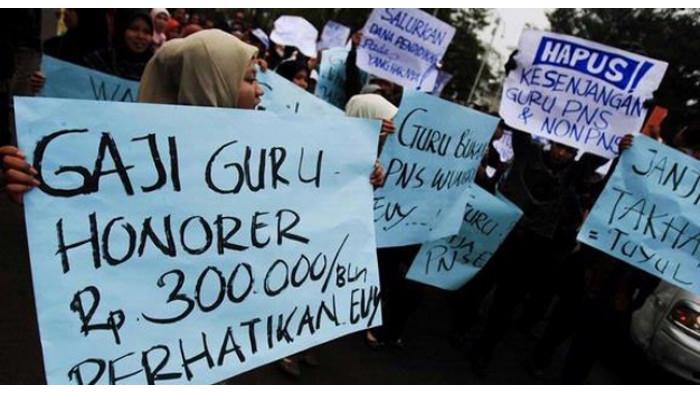 GAJI GURU
HONORER
Rp. 300.000/BLN
PERHATIKAN EUY
SALURKAN
DANA PENDIDIKAN
PADA
YANG HAK NA
HAPUS!
KESENJANGAN
GURU PNS
& NONPNS
GURU BUKAN
PNS WUN
EUY...
GURU
PNS
JANJI
TAKHA
= TUYUL